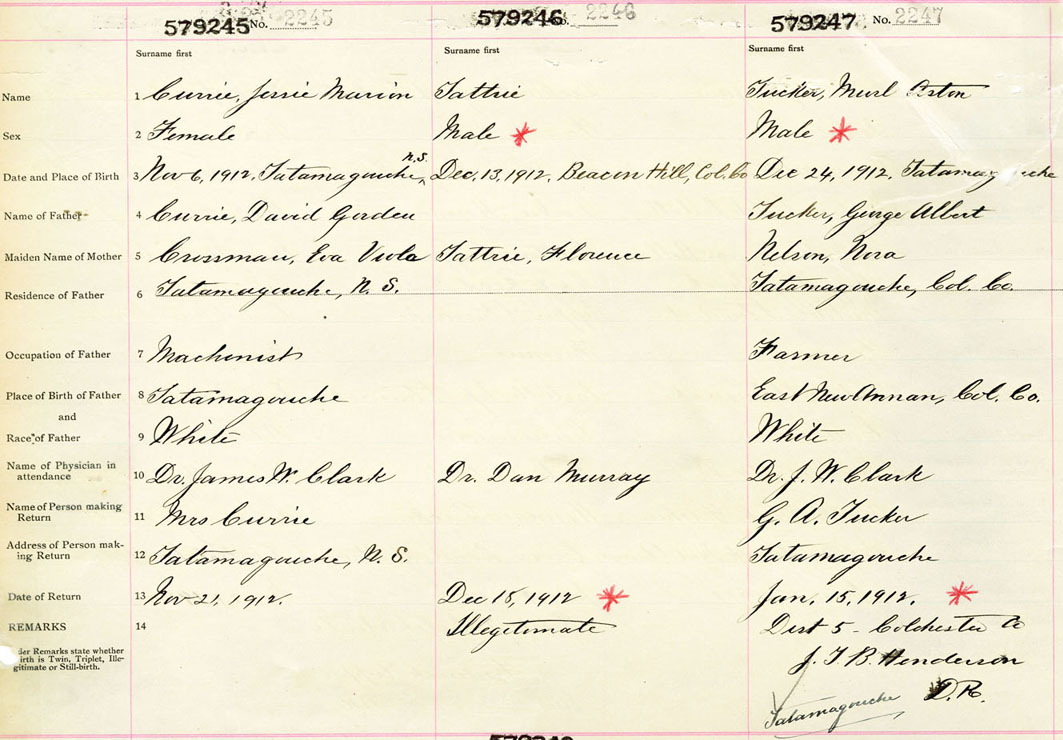 579245 No. 2245 579246 No. 2246 579247 No. 2247
Surname first Surname first Surname first
Name 1 Currie, Jessie Marion Tattrie Tucker, Murl
Sex 2 Female Male * Male *
N.S.
Date and Place of Birth 3 Nov 6, 1912. Tatamagouche, ^ Dec. 13, 1912. Beacon Hill, Col. Co Dec 24, 1912. Tatamagouche
Name of Father 4 Currie, David Gorden Tucker, George Albert
Maiden Name of Mother 5 Crossman, Eva Viola Tattrie, Florence Nelson, Nora
Residence of Father 6 Tatamagouche, N. S. Tatamagouche, Col. Co.
Occupation of Father 7 Machinist Farmer
Place of Birth of Father 8 Tatamagouche East New Annan, Col. Co.
and
Race of Father 9 White White
Name of Physician in
attendance 10 Dr. James W. Clark Dr. Dan Murray Dr. J. W. Clark
Name of Person making
Return 11 Mrs Currie G. A. Tucker
Address of Person mak-
ing Return 12 Tatamagouche, N. S. Tatamagouche
Date of Return 13 Nov 21, 1912. Dec 18, 1912 * Jan. 15, 1912. *
REMARKS 14 Illegitimate Dist 5 - Colchester Co
der Remarks state whether
irth is Twin, Triplet, Ille-
gitimate or Still-birth.
J. T. B. Henderson
D. R.
Tatamagouche